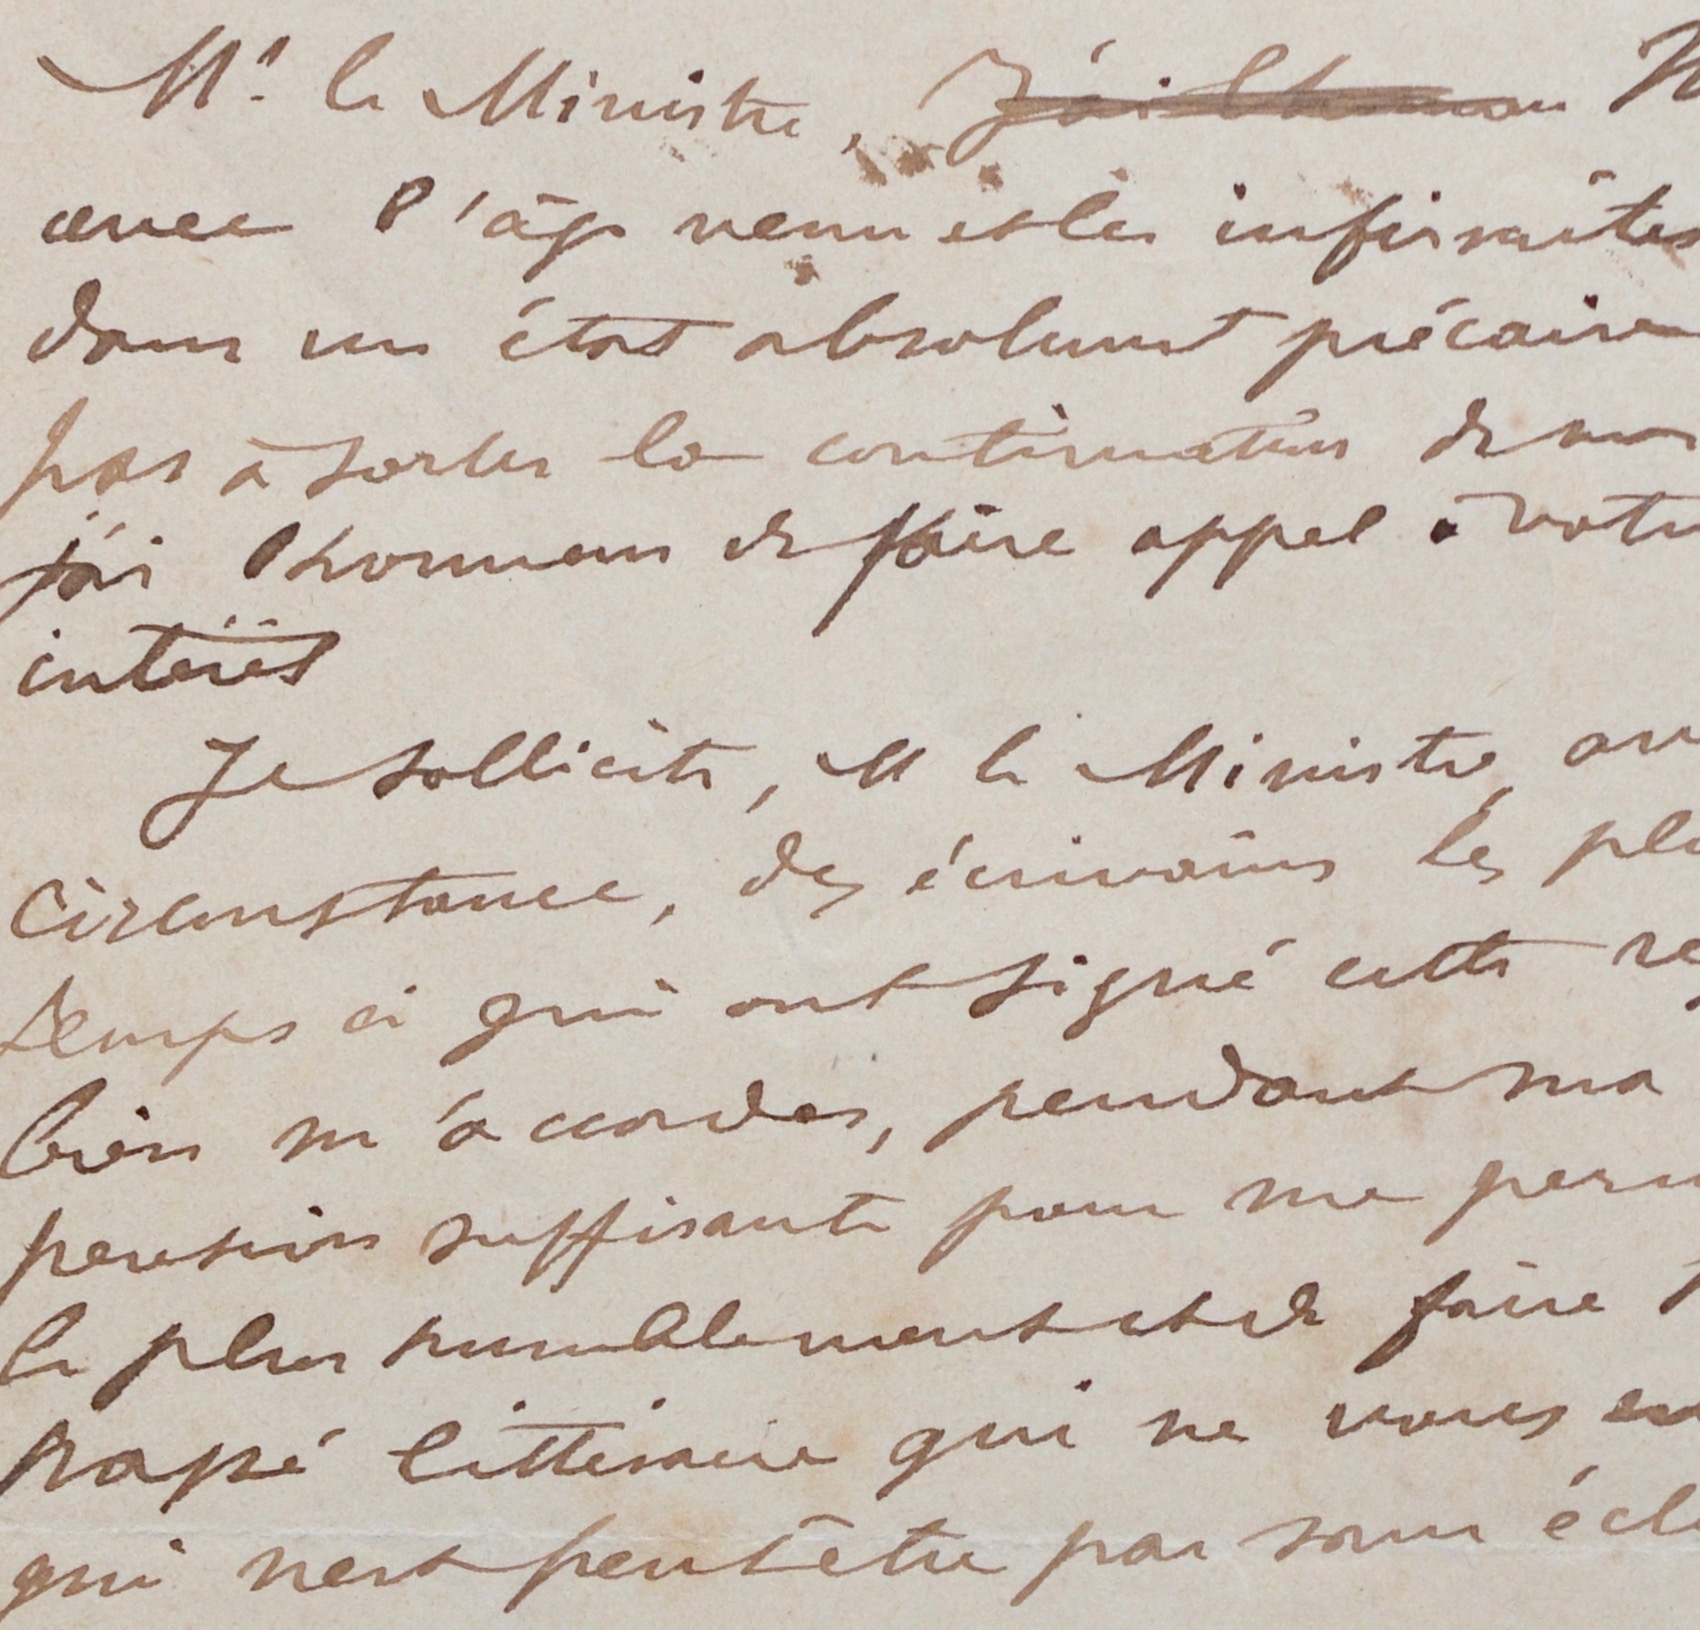 Mr. le Ministre, J'ai l'honneur
avec l'âge venu et les infirmités
dans un état absolument précaire
pas à la continuation de mon
j'ai l'honneur de faire appel à votre
intérêt
Je sollicite, M le Ministre,
circonstance, des écrivains les plu
temps ci qui ont signé cette re
bien m'accorder, pendant ma
pension suffisante pour me perm
le plus humblement et de faire
passé littéraire qui ne vous
qui n'est peut être pas sans écl